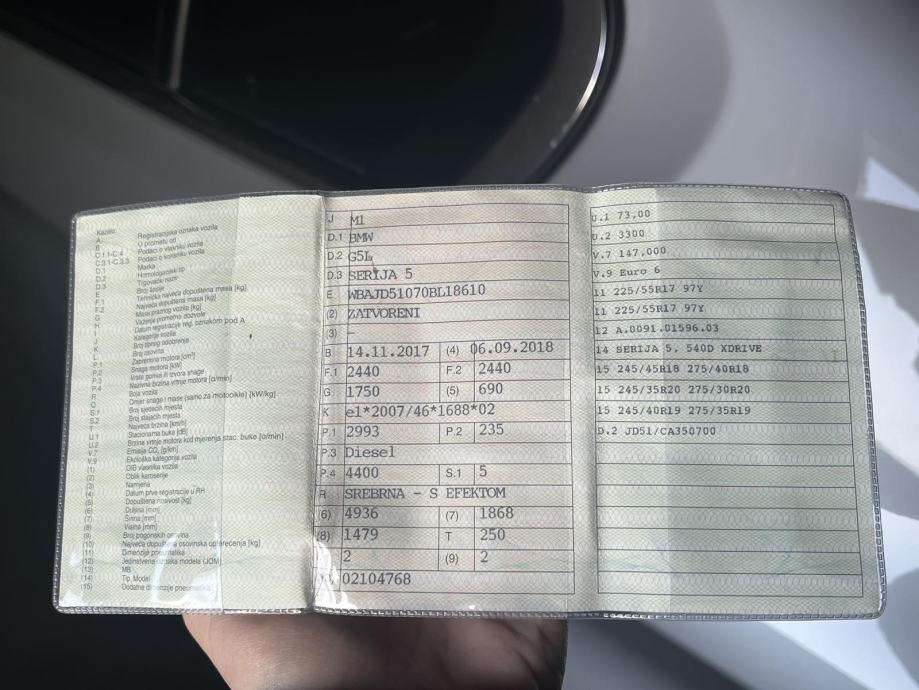 Kazalo:
A Registracijska oznaka vozila
B U prometu od
C.1.1-C.4 Podaci o vlasniku vozila
C.3.1-C.3.3 Podaci o korisniku vozila
D.1 Marka
D.2 Homologacijski tip
D.3 Trgovački naziv
E Broj šasije
F.1 Tehnička najveća dopuštena masa [kg]
F.2 Najveća dopuštena masa [kg]
G Masa praznog vozila [kg]
H Važenje prometne dozvole
I Datum registracije reg. oznakom pod A
J Kategorija vozila
K Broj tipnog odobrenja
L Broj osovina
P.1 Zapremina motora [cm³]
P.2 Snaga motora [kW]
P.3 Vrsta goriva ili izvora snage
P.4 Nazivna brzina vrtnje motora [o/min]
R Boja vozila
Q Omjer snage i mase (samo za motocikle) [kW/kg]
S.1 Broj sjedećih mjesta
S.2 Broj stajaćih mjesta
T Najveća brzina [km/h]
U.1 Stacionarna buka [dB]
U.2 Brzina vrtnje motora kod mjerenja stac. buke [o/min]
V.7 Emisija CO₂ [g/km]
V.9 Ekološka kategorija vozila
(1) OIB vlasnika vozila
(2) Oblik karoserije
(3) Namjena
(4) Datum prve registracije u RH
(5) Dopuštena nosivost [kg]
(6) Duljina [mm]
(7) Širina [mm]
(8) Visina [mm]
(9) Broj pogonskih osovina
(10) Najveća dopuštena osovinska opterećenja [kg]
(11) Dimenzije pneumatika
(12) Jedinstvena oznaka modela (JOM)
(13) MB
(14) Tip, Model
(15) Dodatne dimenzije pneumatika
J M1
D.1 BMW
D.2 G5L
D.3 SERIJA 5
E WBAJD51070BL18610
(2) ZATVORENI
(3) –
B 14.11.2017 (4) 06.09.2018
F.1 2440 F.2 2440
G 1750 (5) 690
K e1*2007/46*1688*02
P.1 2993 P.2 235
P.3 Diesel
P.4 4400 S.1 5
R SREBRNA - S EFEKTOM
(6) 4936 (7) 1868
(8) 1479 T 250
2 (9) 2
02104768
U.1 73,00
U.2 3300
V.7 147,000
V.9 Euro 6
11 225/55R17 97Y
11 225/55R17 97Y
12 A.0091.01596.03
14 SERIJA 5, 540D XDRIVE
15 245/45R18 275/40R18
15 245/35R20 275/30R20
15 245/40R19 275/35R19
D.2 JD51/CA350700